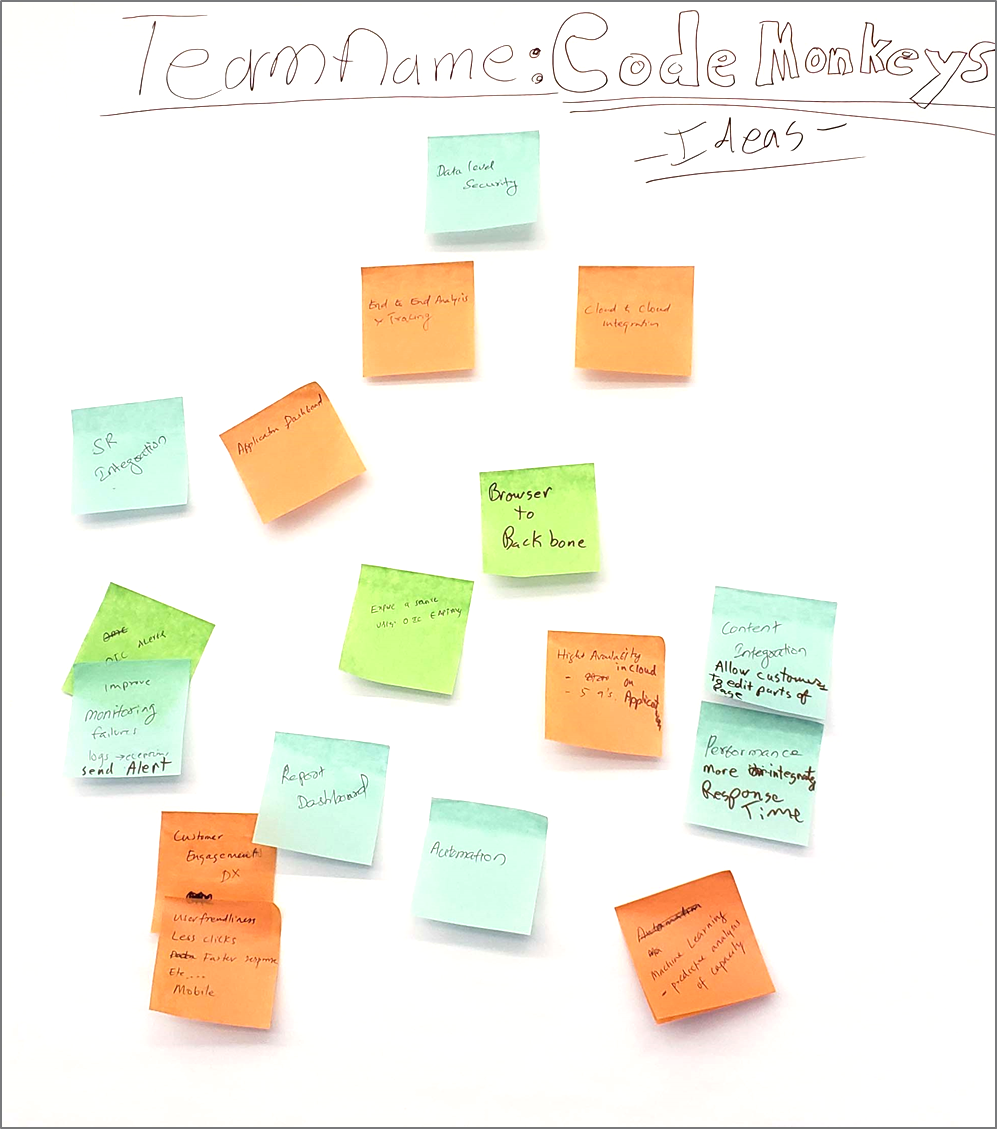 Team Name: Code Monkeys
- Ideas -
Data level
Security
End to End Analysis
& Tracing
Cloud to Cloud
Integration
SR
Integration
Application Dashboard
Browser
to
Backbone
OIC Alerts
Improve
monitoring
failures
logs →
send Alert
a service
using OIC
Hight Availability
in cloud
- on
- 5 9's. Applicat
Content
Integration
Allow customers
to edit parts of
Page
Performance
more integrate
Response
Time
Report
Dashboard
Automation
Customer
Engagement
DX
Userfrendliness
Less clicks
Faster response
Etc....
Mobile
Automation
Machine Learning
- predictive analysis
of capacity